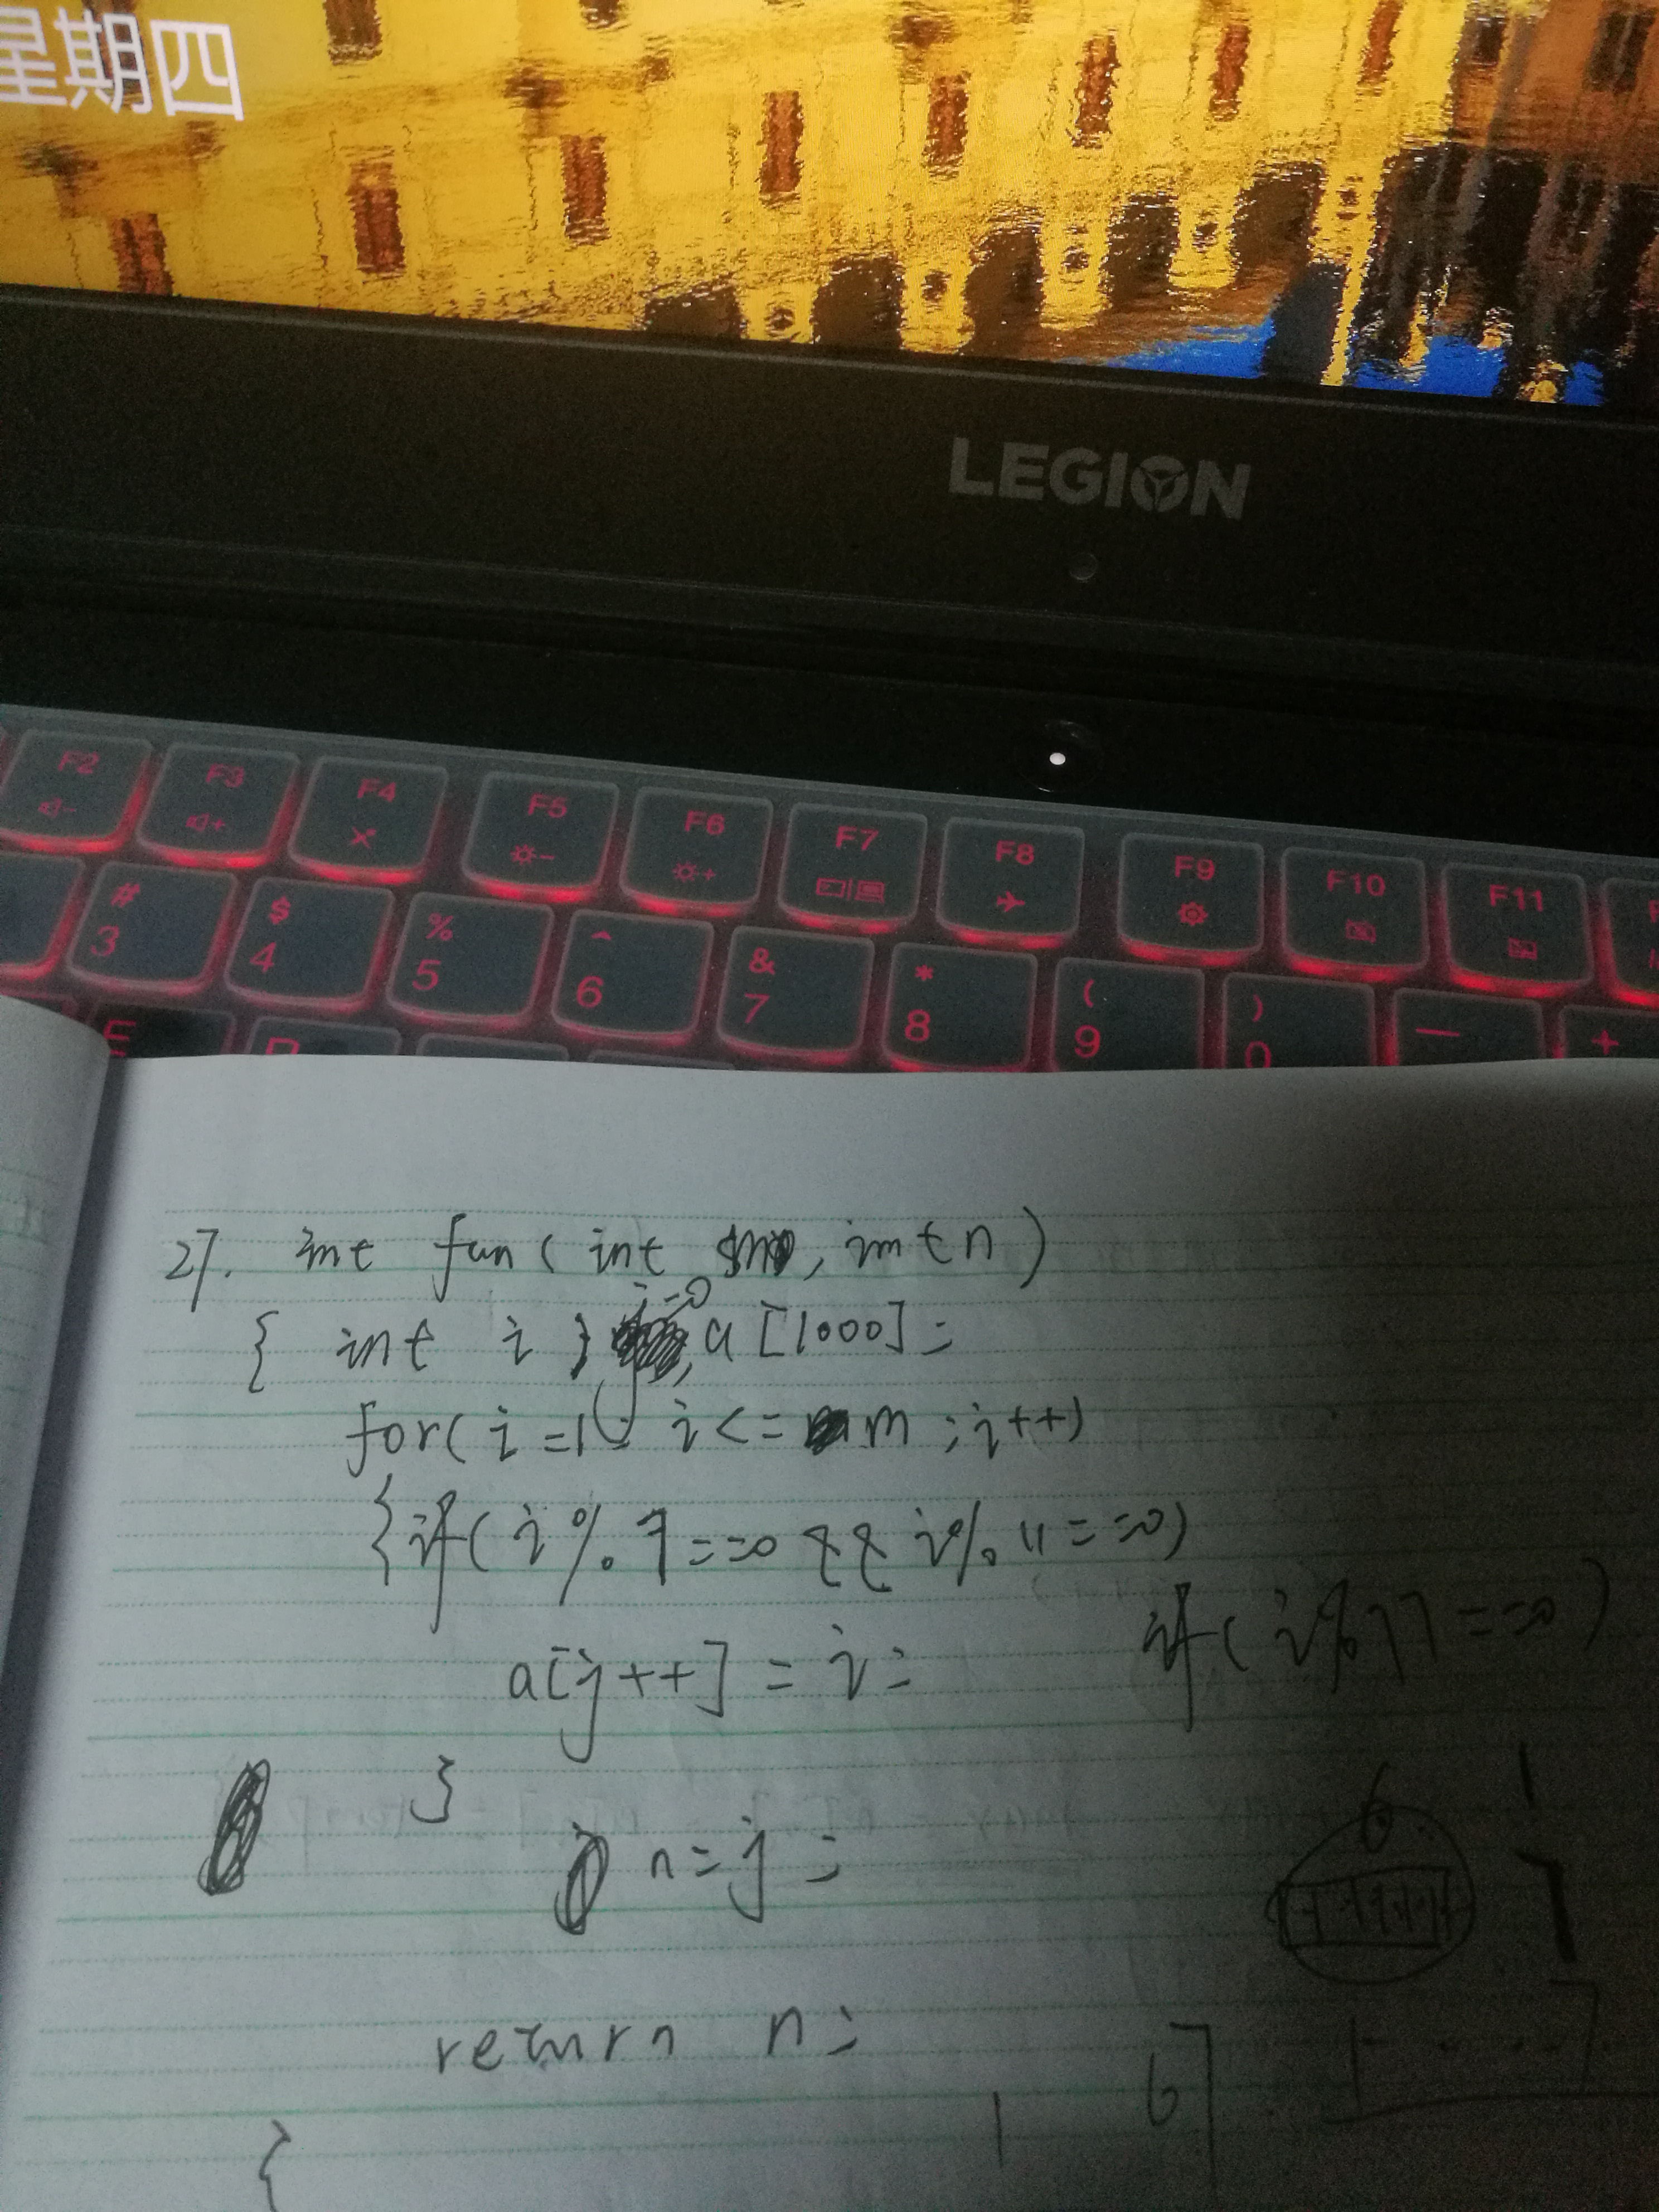 星期四
LEGION
F2 F3 F4 F5 F6 F7 F8 F9 F10 F11
# $ % ^ & * ( ) — +
3 4 5 6 7 8 9 0
E
27. int fun( int m, int n)
{ int i, j=0, a[1000];
for( i=1; i<= m ;i++)
{if( i%7==0 && i%11==0)
a[j++] = i;
if( i%77==0)
}
n=j;
6
1
7
return n;
6 7
1
{